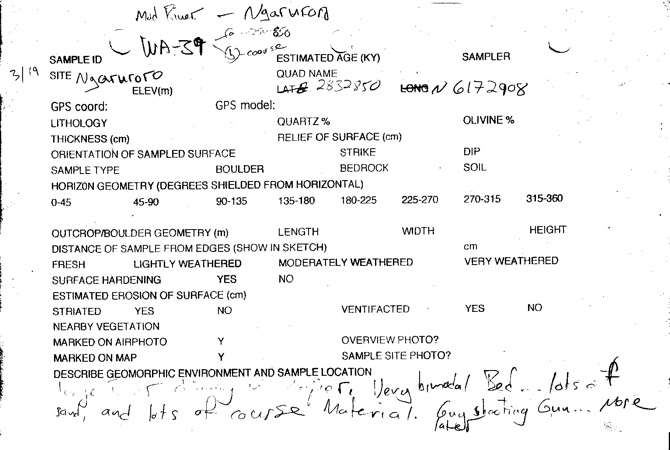 Mid River - Ngaruroro
250-850
SAMPLE ID WA-39 (1) course ESTIMATED AGE (KY) SAMPLER
3/19 SITE Ngaruroro QUAD NAME
ELEV(m) LAT E 2832850 LONG N 6172908
GPS coord: GPS model:
LITHOLOGY QUARTZ % OLIVINE %
THICKNESS (cm) RELIEF OF SURFACE (cm)
ORIENTATION OF SAMPLED SURFACE STRIKE DIP
SAMPLE TYPE BOULDER BEDROCK SOIL
HORIZON GEOMETRY (DEGREES SHIELDED FROM HORIZONTAL)
0-45 45-90 90-135 135-180 180-225 225-270 270-315 315-360
OUTCROP/BOULDER GEOMETRY (m) LENGTH WIDTH HEIGHT
DISTANCE OF SAMPLE FROM EDGES (SHOW IN SKETCH) cm
FRESH LIGHTLY WEATHERED MODERATELY WEATHERED VERY WEATHERED
SURFACE HARDENING YES NO
ESTIMATED EROSION OF SURFACE (cm)
STRIATED YES NO VENTIFACTED YES NO
NEARBY VEGETATION
MARKED ON AIRPHOTO Y OVERVIEW PHOTO?
MARKED ON MAP Y SAMPLE SITE PHOTO?
DESCRIBE GEOMORPHIC ENVIRONMENT AND SAMPLE LOCATION
Very bimodal Bed... lots of
sand, and lots of course Material. Guy shooting Gun... More
later